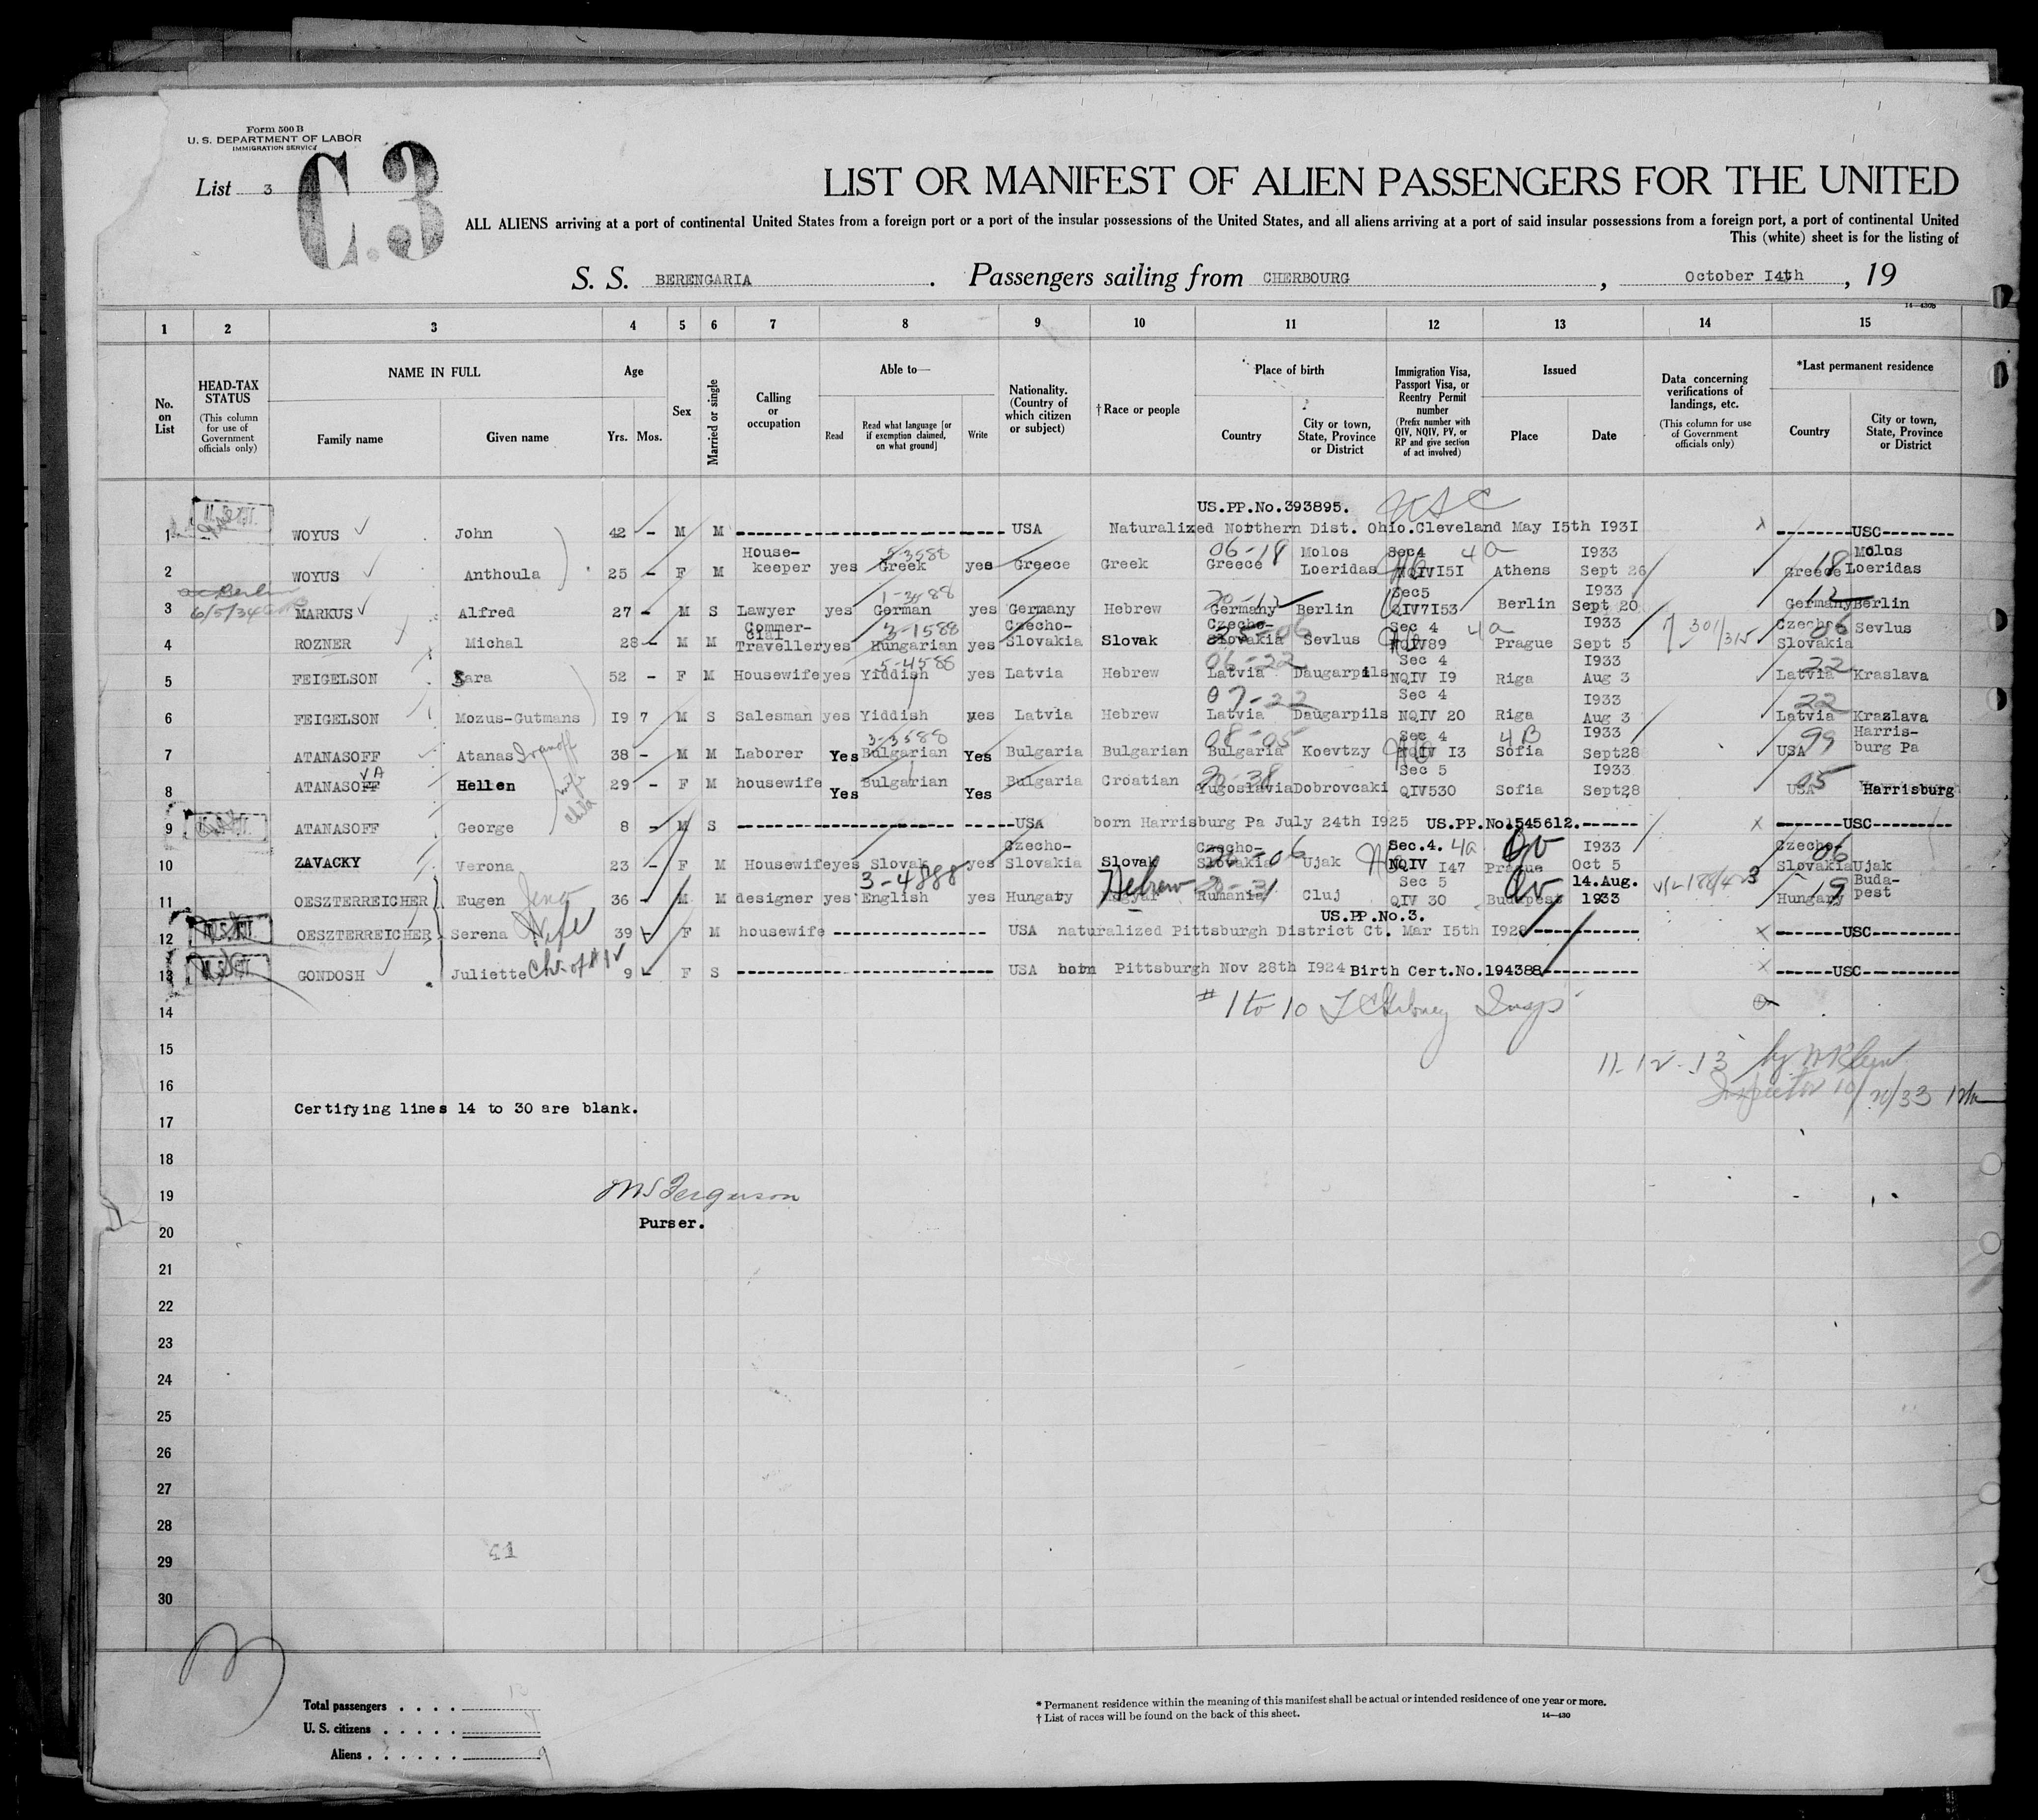 Form 500 B
U. S. DEPARTMENT OF LABOR
IMMIGRATION SERVICE
List 3
C.3
LIST OR MANIFEST OF ALIEN PASSENGERS FOR THE UNITED
ALL ALIENS arriving at a port of continental United States from a foreign port or a port of the insular possessions of the United States, and all aliens arriving at a port of said insular possessions from a foreign port, a port of continental United
This (white) sheet is for the listing of
S. S. BERENGARIA. Passengers sailing from CHERBOURG, October I4th, 19
14—430b
1 2 3 4 5 6 7 8 9 10 11 12 13 14 15
No. on List
HEAD-TAX STATUS (This column for use of Government officials only)
NAME IN FULL
Family name
Given name
Age
Yrs. Mos.
Sex
Married or single
Calling or occupation
Able to—
Read
Read what language [or if exemption claimed, on what ground]
Write
Nationality. (Country of which citizen or subject)
† Race or people
Place of birth
Country
City or town, State, Province or District
Immigration Visa, Passport Visa, or Reentry Permit number (Prefix number with QIV, NQIV, PV, or RP and give section of act involved)
Issued
Place
Date
Data concerning verifications of landings, etc. (This column for use of Government officials only)
*Last permanent residence
Country
City or town, State, Province or District
US.PP.No.393895. USC
1 WOYUS John 42 - M M USA Naturalized Northern Dist. Ohio.Cleveland May I5th I93I USC
2 WOYUS Anthoula 25 - F M House-keeper yes 5-3588 Greek yes Greece Greek 06-18 Greece Molos Loeridas Sec4 4a NQIVI5I Athens I933 Sept 26 Greece 18 Molos Loeridas
6/5/34
3 MARKUS Alfred 27 - M S Lawyer yes German yes Germany Hebrew Germany Berlin Sec5 QIV7I53 Berlin I933 Sept 20 Germany Berlin
4 ROZNER Michal 28 - M M Commer-cial Traveller yes 3-1588 Hungarian yes Czecho-Slovakia Slovak Czecho-Slovakia Sevlus Sec 4 4a NQIV89 Prague I933 Sept 5 301/315 Czecho Slovakia 06 Sevlus
5 FEIGELSON Sara 52 - F M Housewife yes 5-4588 Yiddish yes Latvia Hebrew 06-22 Latvia Daugarpils Sec 4 NQIV I9 Riga I933 Aug 3 22 Latvia Kraslava
6 FEIGELSON Mozus-Gutmans I9 7 M S Salesman yes Yiddish yes Latvia Hebrew 07-22 Latvia Daugarpils Sec 4 NQIV 20 Riga I933 Aug 3 22 Latvia Krazlava
7 ATANASOFF Atanas Ivanoff 38 - M M Laborer Yes 3-3588 Bulgarian Yes Bulgaria Bulgarian 08-05 Bulgaria Koevtzy Sec 4 4B NQIV I3 Sofia I933 Sept28 USA 99 Harris-burg Pa
8 ATANASOFF VA Hellen wife 29 - F M housewife Yes Bulgarian Yes Bulgaria Croatian 20-38 Yugoslavia Dobrovcaki Sec 5 QIV530 Sofia I933 Sept28 USA 05 Harrisburg
9 ATANASOFF George child 8 - M S USA born Harrisburg Pa July 24th I925 US.PP.No1545612. USC
10 ZAVACKY Verona 23 - F M Housewife yes Slovak yes Czecho-Slovakia Slovak Czecho-Slovakia Ujak Sec.4. 4a NQIV I47 Prague I933 Oct 5 Czecho-Slovakia 06 Ujak
11 OESZTERREICHER Eugen Jeno 36 - M M designer yes 3-4888 English yes Hungary Hebrew Magyar 20-31 Rumania Cluj Sec 5 QIV 30 Budapest 14.Aug. 1933 Hungary 19 Buda-pest
US.PP.No.3.
12 OESZTERREICHER Serena Wife 39 - F M housewife USA naturalized Pittsburgh District Ct. Mar I5th I928 USC
13 GONDOSH Juliette Ch. of #12 9 - F S USA born Pittsburgh Nov 28th I924 Birth Cert.No.194388 USC
14
# 1 to 10
15
11-12-13 by
16
Inspector 10/20/33
Certifying lines 14 to 30 are blank.
17
18
19
M S Ferguson
Purser.
20
21
22
23
24
25
26
27
28
29
30
Total passengers . . . .
U. S. citizens . . . . .
Aliens . . . . . . 9
* Permanent residence within the meaning of this manifest shall be actual or intended residence of one year or more.
† List of races will be found on the back of this sheet.
14—430